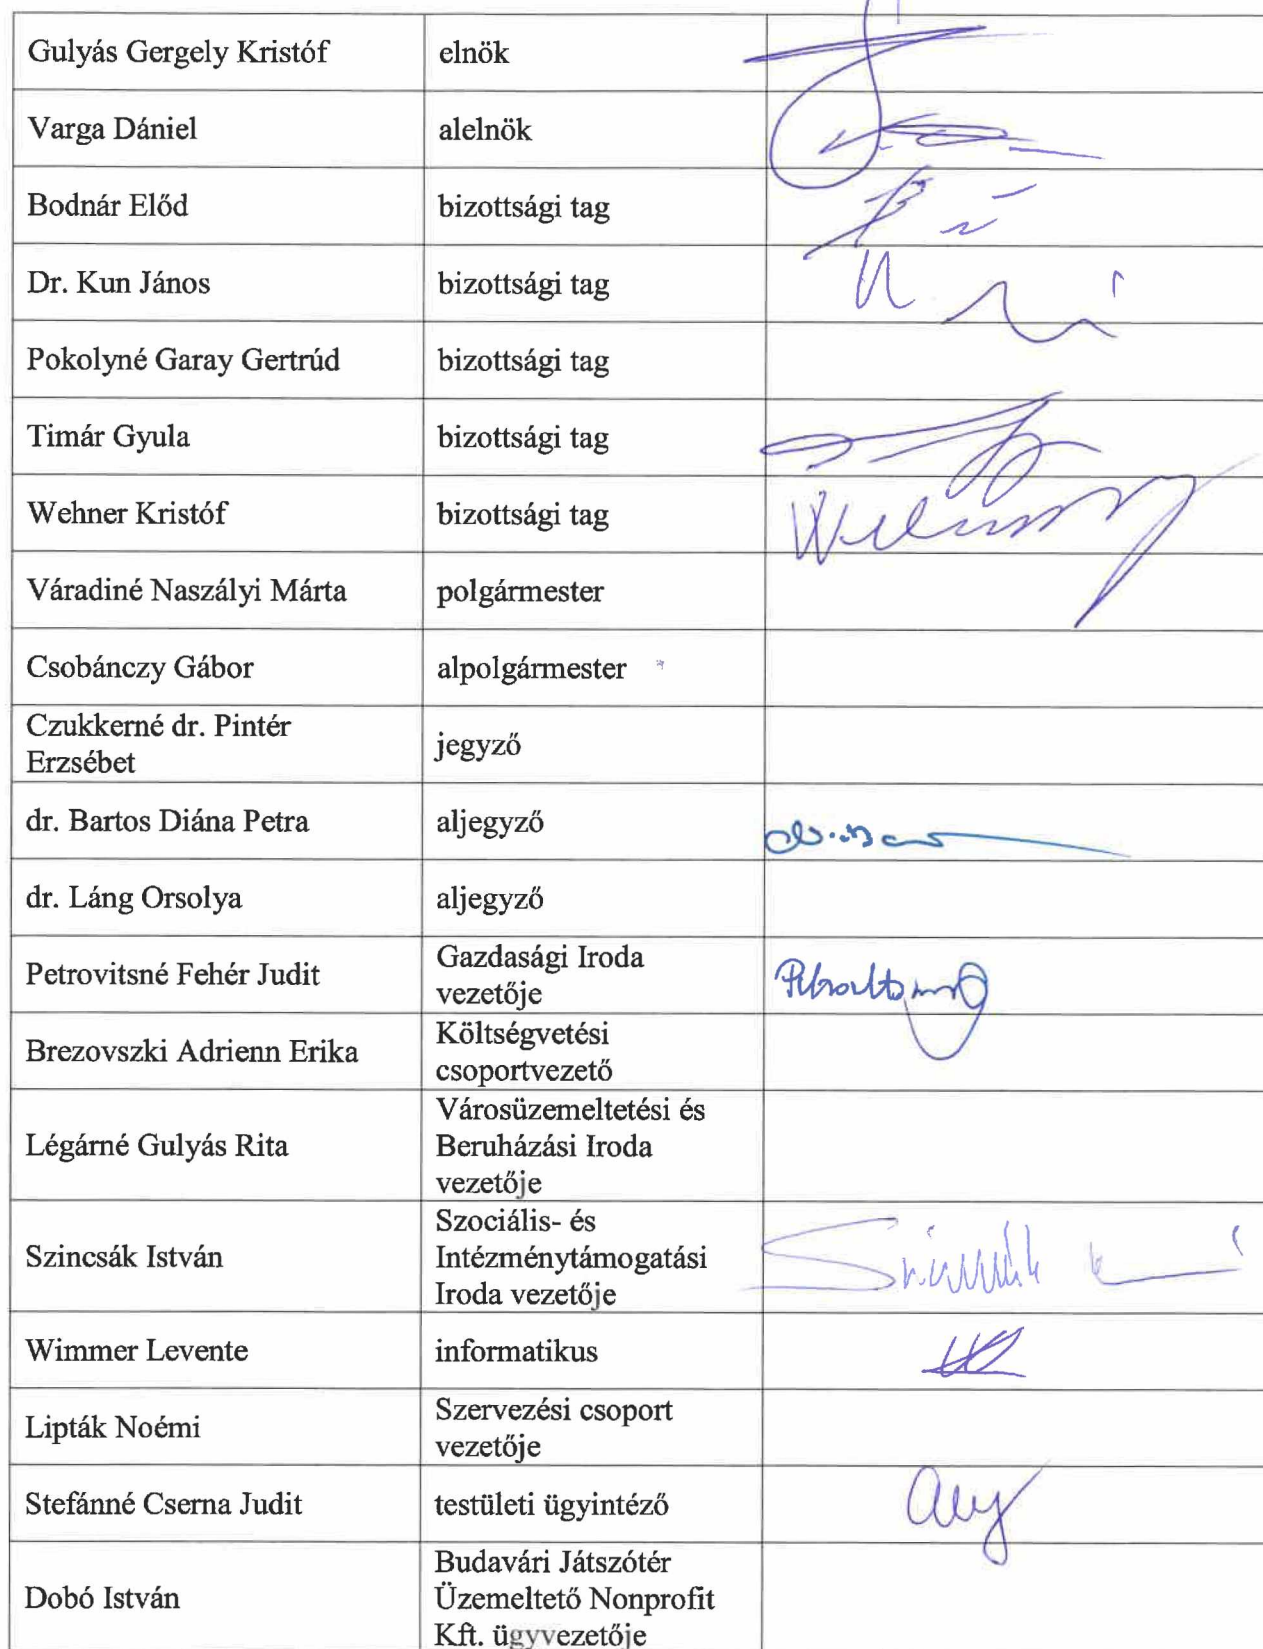 Gulyás Gergely Kristóf elnök
Varga Dániel alelnök
Bodnár Előd bizottsági tag
Dr. Kun János bizottsági tag
Pokolyné Garay Gertrúd bizottsági tag
Timár Gyula bizottsági tag
Wehner Kristóf bizottsági tag
Váradiné Naszályi Márta polgármester
Csobánczy Gábor alpolgármester
Czukkerné dr. Pintér
Erzsébet
jegyző
dr. Bartos Diána Petra aljegyző
dr. Láng Orsolya aljegyző
Petrovitsné Fehér Judit
Gazdasági Iroda
vezetője
Brezovszki Adrienn Erika
Költségvetési
csoportvezető
Légárné Gulyás Rita
Városüzemeltetési és
Beruházási Iroda
vezetője
Szincsák István
Szociális- és
Intézménytámogatási
Iroda vezetője
Wimmer Levente informatikus
Lipták Noémi
Szervezési csoport
vezetője
Stefánné Cserna Judit testületi ügyintéző
Dobó István
Budavári Játszótér
Üzemeltető Nonprofit
Kft. ügyvezetője